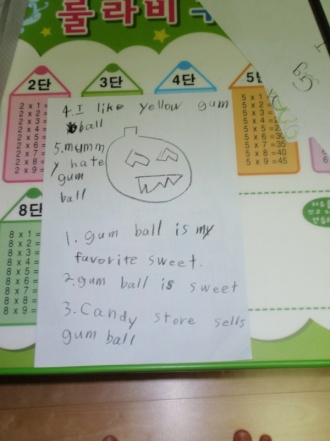 룰라비
2단
3단
4단
5단
2 x 1 =
2 x 2 =
2 x 3 =
2 x 4 =
2 x 5 =
2 x 6 =
2 x 7 =
2 x 8 =
2 x 9 =
5 x 5 =25
5 x 6 =30
5 x 7 =35
5 x 8 =40
5 x 9 =45
4. I like yellow gum
ball
5. mumm
y hate
gum
ball
8단
8 x 1 =
8 x 2 =
8 x 3 =
8 x 4 =
8 x 5 =
8 x 6 =
8 x 7 =
8 x 8 =
8 x 9 =
1. gum ball is my
favorite sweet.
2. gum ball is sweet
3. Candy store sells
gum ball